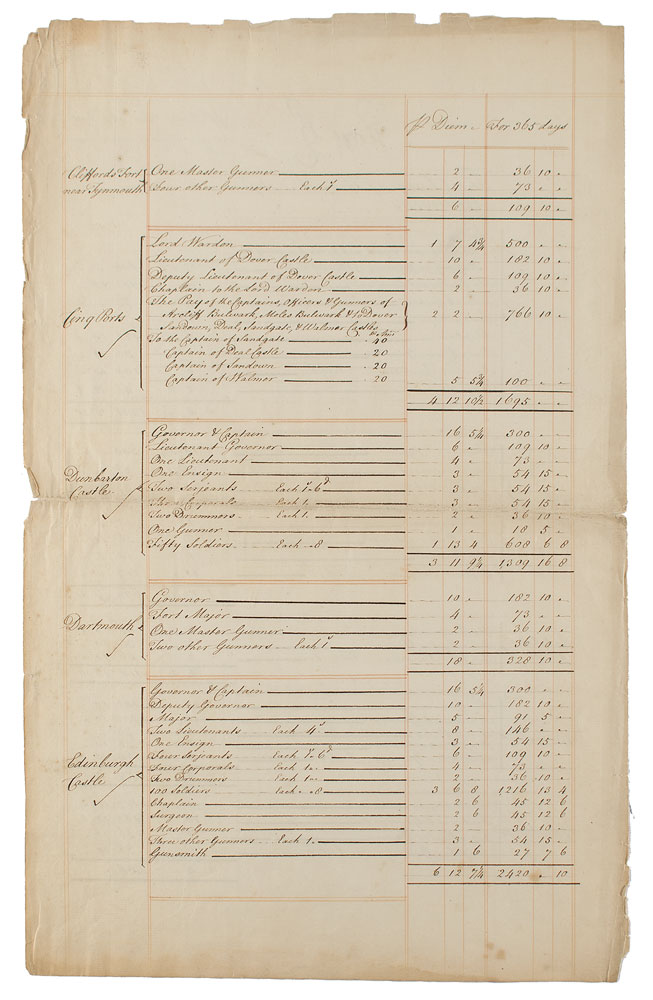 ⅌ Diem For 365 days
Cliffords Fort One Master Gunner 2 " 36 10 "
near Tynmouth Four other Gunners Each 1s 4 " 73 " "
6 " 109 10 "
Lord Wardon 1 7 4¾ 500 " "
Lieutenant of Dover Castle 10 " 182 10 "
Deputy Lieutenant of Dover Castle 6 " 109 10 "
Chaplain to the Lord Wardon 2 " 36 10 "
The Pay of the Captains, Officers & Gunners of
Cinq Ports Arcliff Bulwark, Moles Bulwark & in Dover 2 2 " 766 10 "
Sandown, Deal, Sandgate, & Walmor Castles
To the Captain of Sandgate 40
Captain of Deal Castle 20
Captain of Sandown 20
Captain of Walmor 20 5 5¾ 100 " "
4 12 10½ 1695 " "
Governor & Captain 16 5¼ 300 " "
Lieutenant Governor 6 " 109 10 "
One Lieutenant 4 " 73 " "
One Ensign 3 " 54 15 "
Dunbarton Two Serjeants Each 1s 6d 3 " 54 15 "
Castle Three Corporals Each 1 " 3 " 54 15 "
Two Drummers Each 1 " 2 " 36 10 "
One Gunner 1 " 18 5 "
Fifty Soldiers Each " 8 1 13 4 608 6 8
3 11 9¼ 1309 16 8
Governor 10 " 182 10 "
Fort Major 4 " 73 " "
Dartmouth One Master Gunner 2 " 36 10 "
Two other Gunners Each 1s 2 " 36 10 "
18 " 328 10 "
Governor & Captain 16 5¼ 300 " "
Deputy Governor 10 " 182 10 "
Major 5 " 91 5 "
Two Lieutenants Each 4s 8 " 146 " "
One Ensign 3 " 54 15 "
Edinburgh Four Serjeants Each 1s 6d 6 " 109 10 "
Four Corporals Each 1 " 4 " 73 " "
Castle Two Drummers Each 1 " 2 " 36 10 "
100 Soldiers Each " 8 3 6 8 1216 13 4
Chaplain 2 6 45 12 6
Surgeon 2 6 45 12 6
Master Gunner 2 " 36 10 "
Three other Gunners Each 1 " 3 " 54 15 "
Gunsmith 1 6 27 7 6
6 12 7¼ 2420 " 10